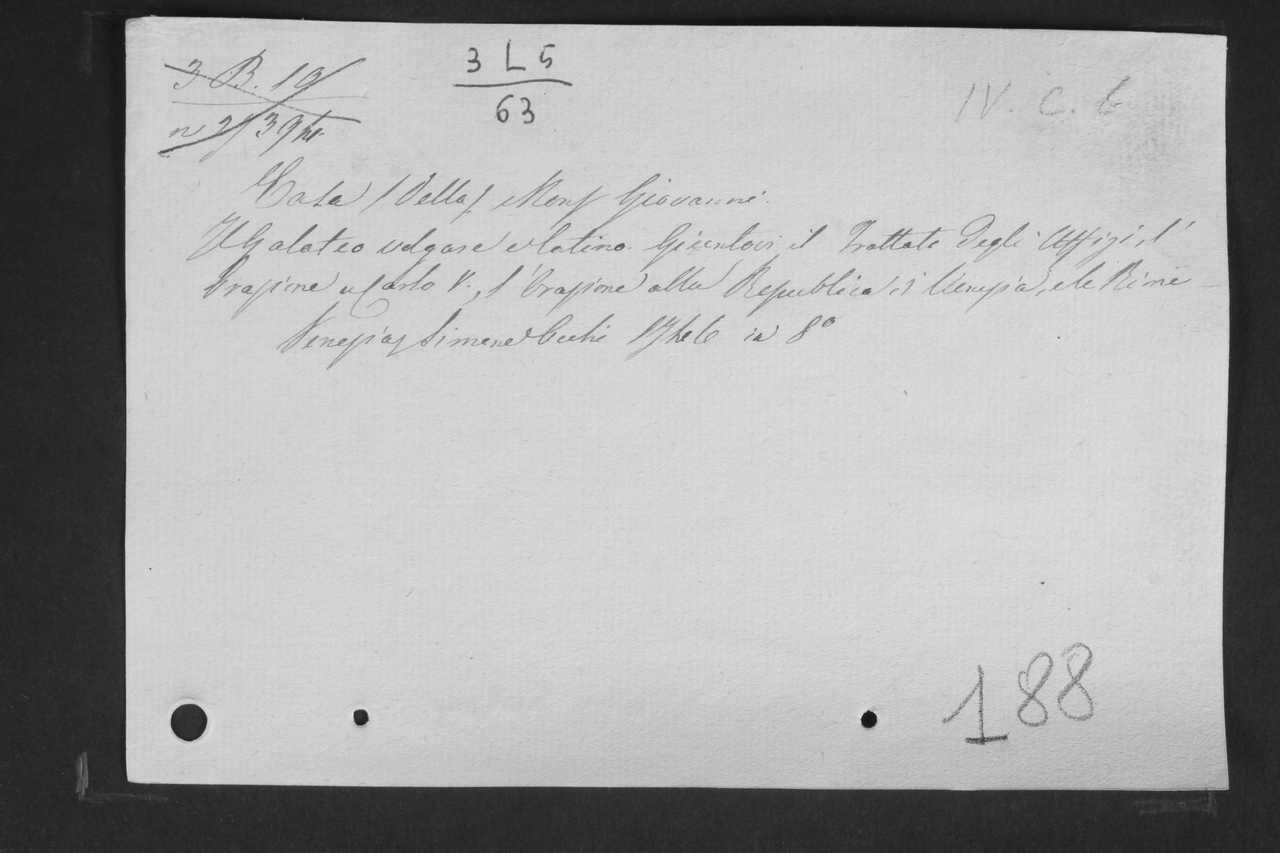 3 B. 19
3 L 5
63
IV. C. 6
n 2 39
Casa (Della) Mons Giovanni.
Il Galateo volgare e latino. Giuntovi il Trattato degli Uffizi, l'
Orazione a Carlo V., l'Orazione alla Repubblica di Venezia, e le Rime
Venezia, Simone Occhi in 8°
188